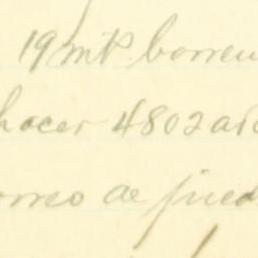 19 mts borren
hacer 4802 ad
orreo de pied